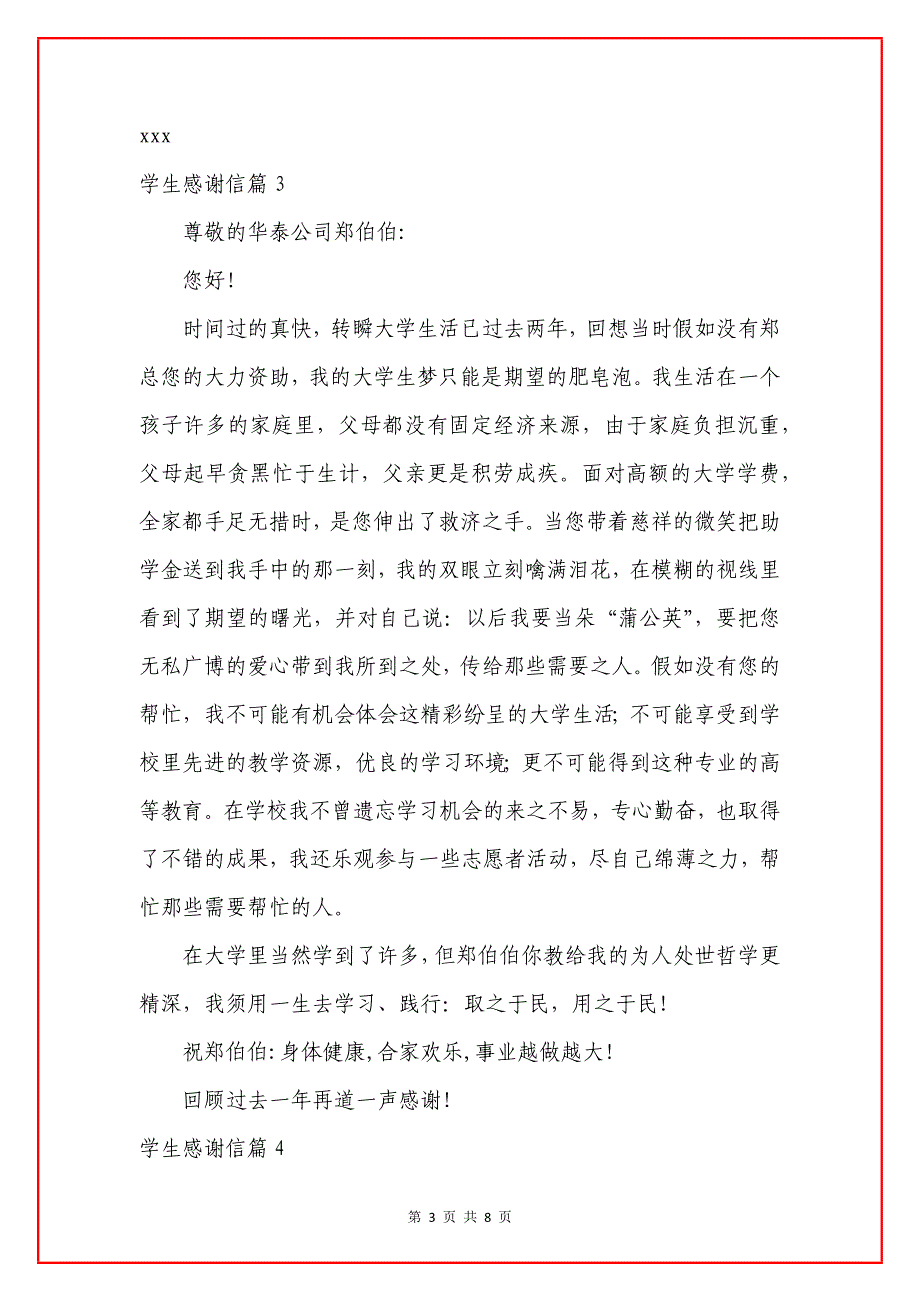 xxx
学生感谢信篇 3
尊敬的华泰公司郑伯伯:
您好!
时间过的真快，转瞬大学生活已过去两年，回想当时假如没有郑
总您的大力资助，我的大学生梦只能是期望的肥皂泡。我生活在一个
孩子许多的家庭里，父母都没有固定经济来源，由于家庭负担沉重，
父母起早贪黑忙于生计，父亲更是积劳成疾。面对高额的大学学费，
全家都手足无措时，是您伸出了救济之手。当您带着慈祥的微笑把助
学金送到我手中的那一刻，我的双眼立刻噙满泪花，在模糊的视线里
看到了期望的曙光，并对自己说：以后我要当朵“蒲公英”，要把您
无私广博的爱心带到我所到之处，传给那些需要之人。假如没有您的
帮忙，我不可能有机会体会这精彩纷呈的大学生活；不可能享受到学
校里先进的教学资源，优良的学习环境；更不可能得到这种专业的高
等教育。在学校我不曾遗忘学习机会的来之不易，专心勤奋，也取得
了不错的成果，我还乐观参与一些志愿者活动，尽自己绵薄之力，帮
忙那些需要帮忙的人。
在大学里当然学到了许多，但郑伯伯你教给我的为人处世哲学更
精深，我须用一生去学习、践行：取之于民，用之于民!
祝郑伯伯:身体健康,合家欢乐,事业越做越大!
回顾过去一年再道一声感谢!
学生感谢信篇 4
第 3 页 共 8 页